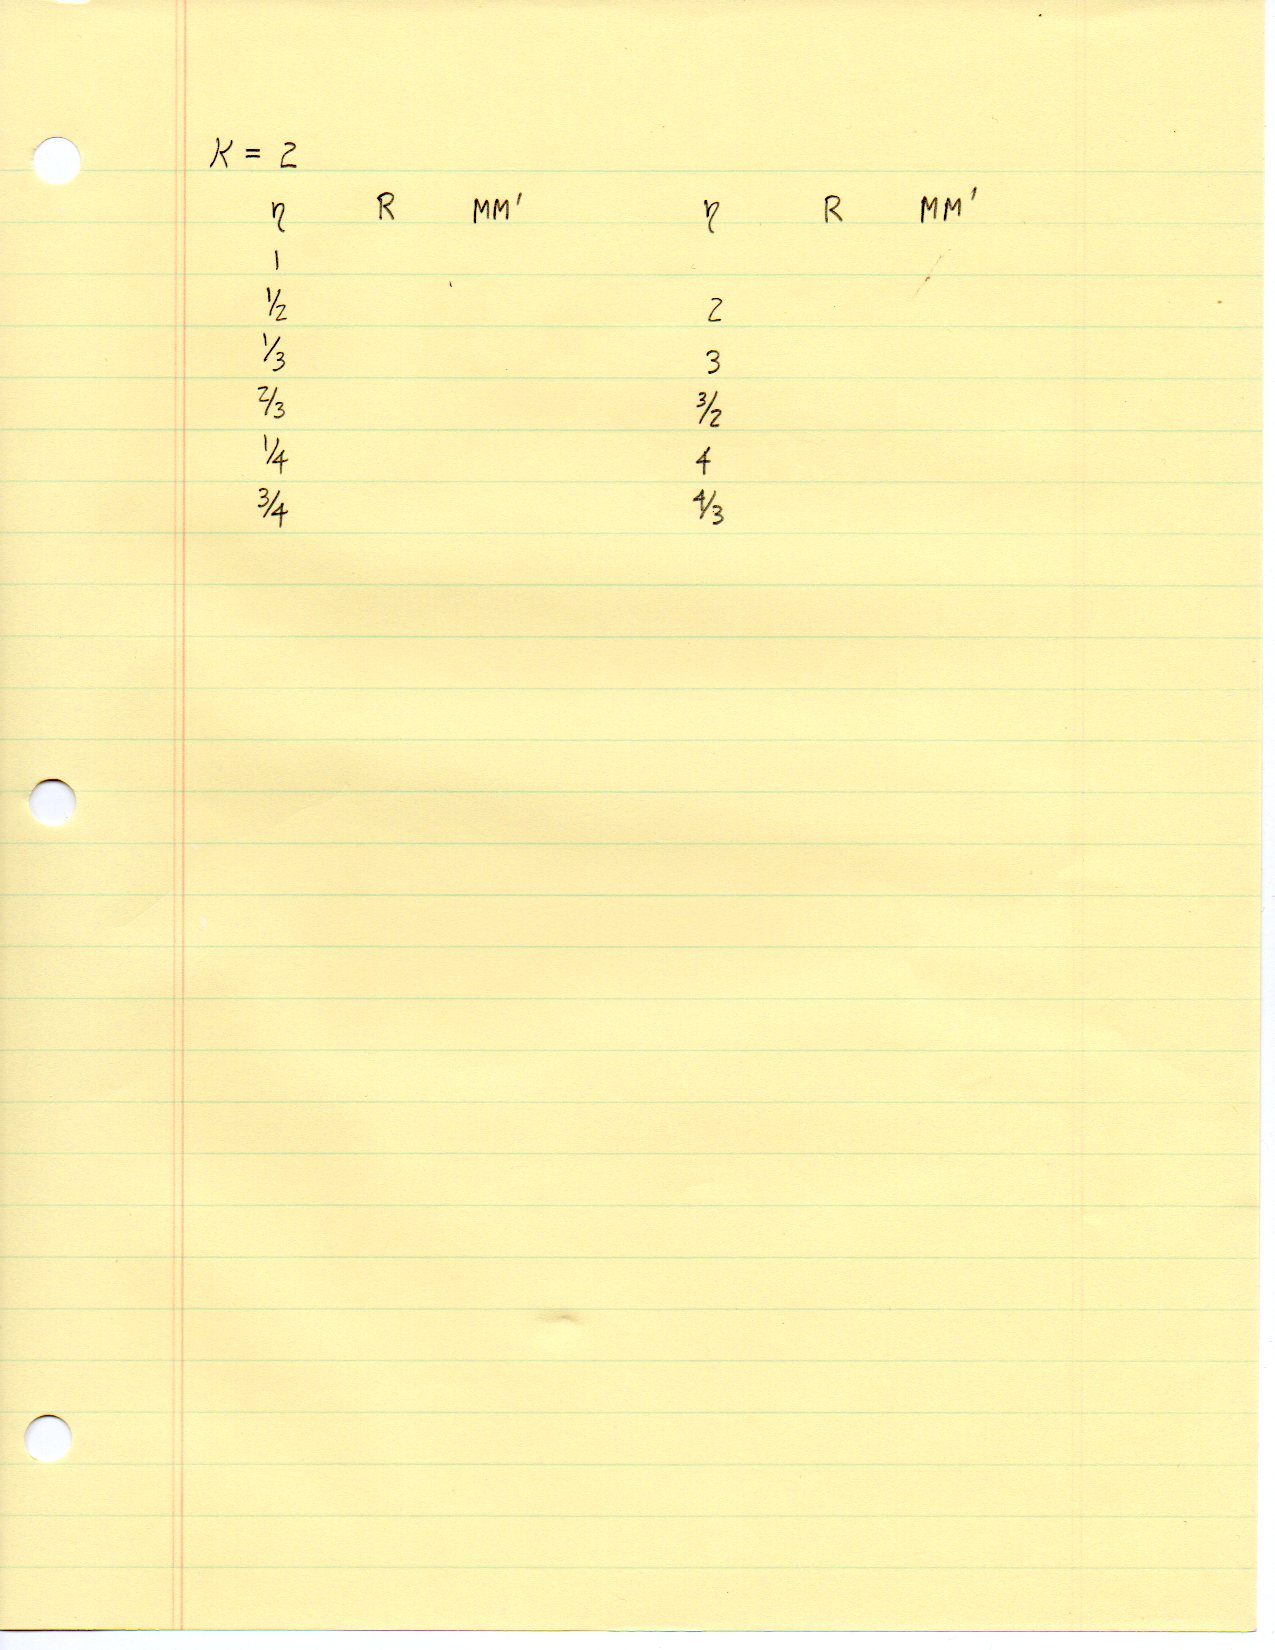 K = 2
η R MM' η R MM'
1
1/2 2
1/3 3
2/3 3/2
1/4 4
3/4 4/3